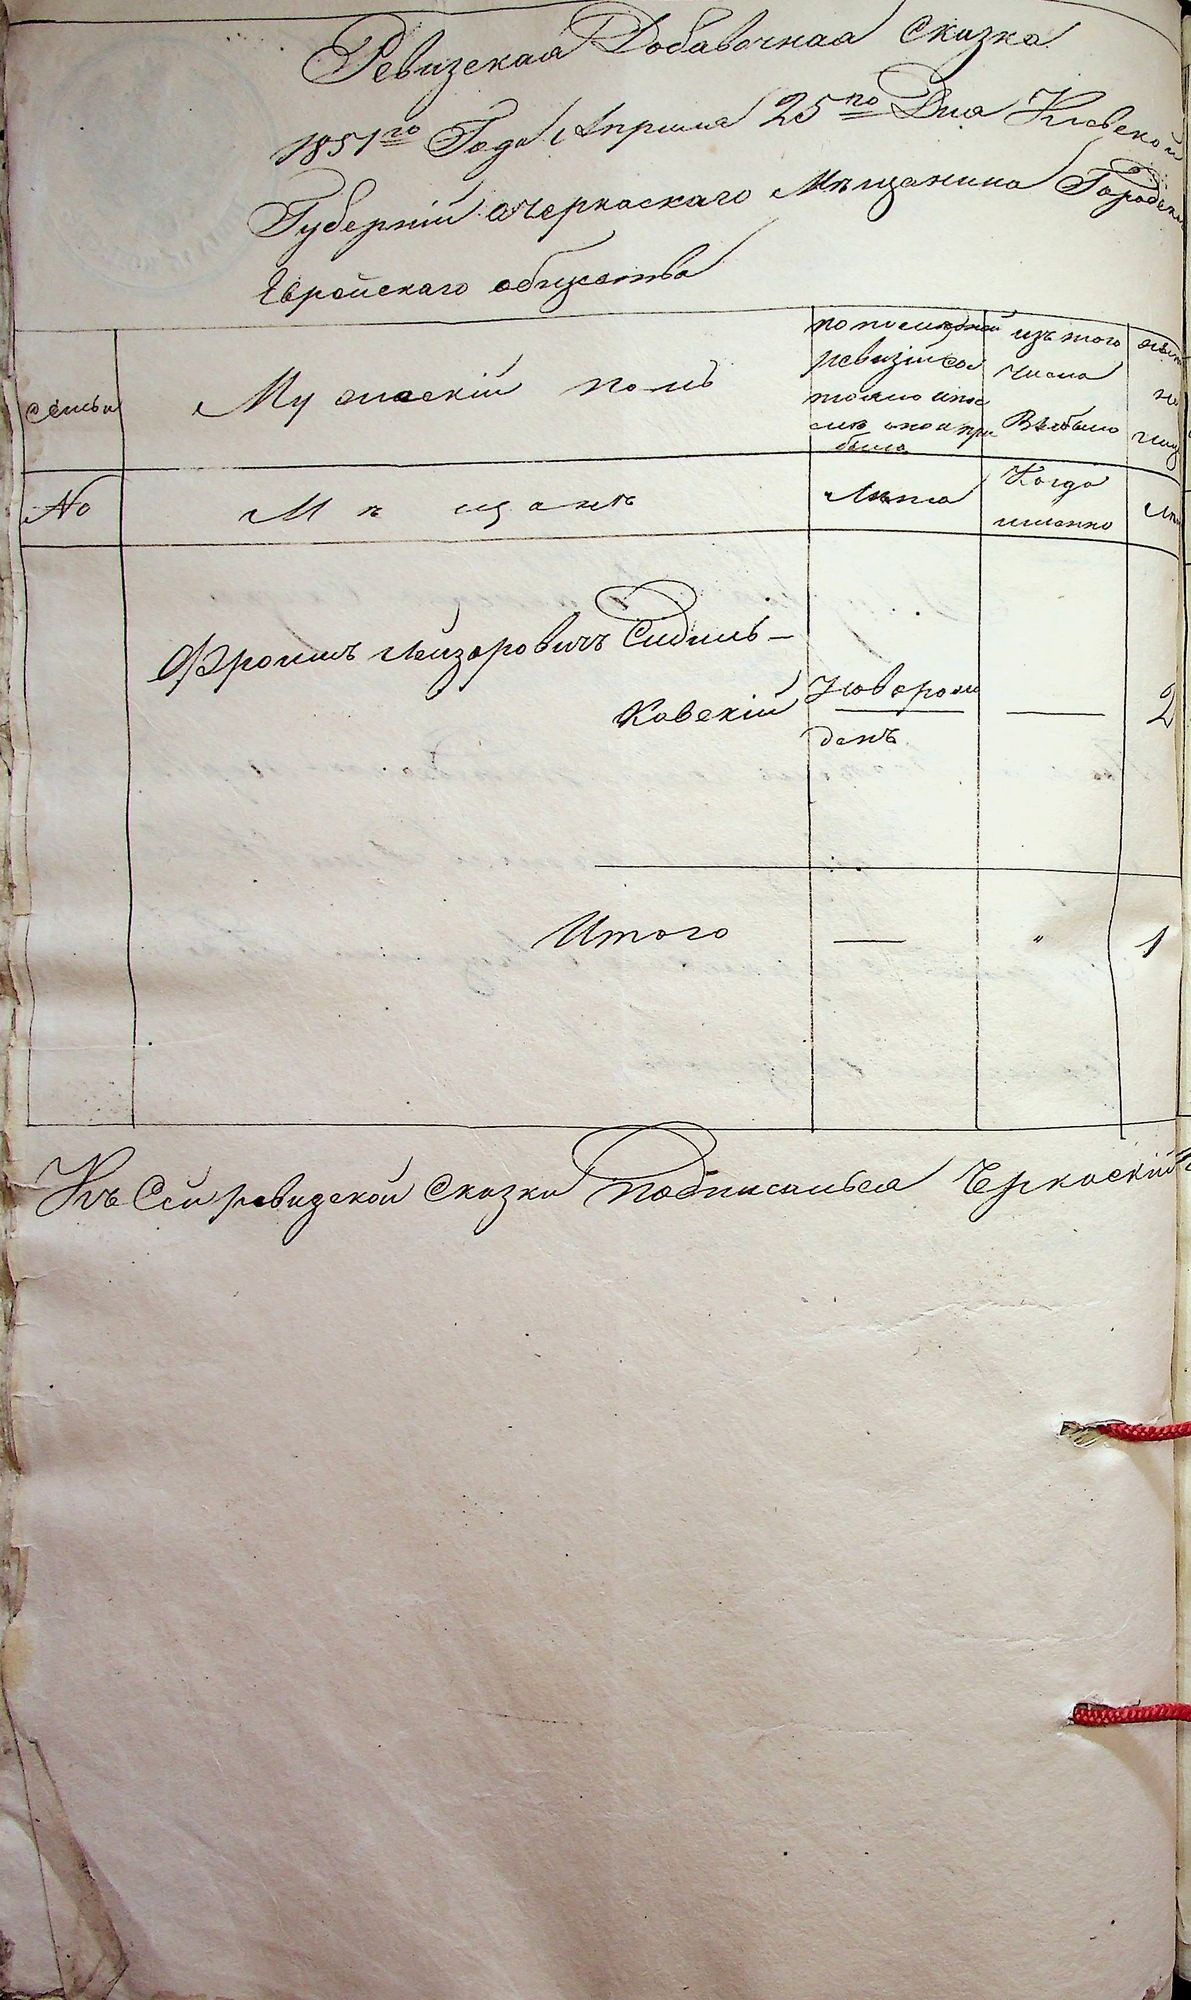 Ревизская Добавочная Сказка
1851го Года Апреля 25го Дня Киевской
Губерніи Черкаскаго Мѣщанина Городска
Еврейскаго общества
Семьи
Мужескій полъ
по последней ревизіи сос
тояло и пос
ле оной при
было
изъ того
числа
Выбыло
ныне
на
лицо
No
Мѣщанъ
Лѣта
Когда
именно
Лѣт
Фроимъ Лейзоровичъ Сидель-
Ковскій
Новорож
денъ
2
Итого
1
Къ Сей ревизской Сказки Подписался Черкаскій